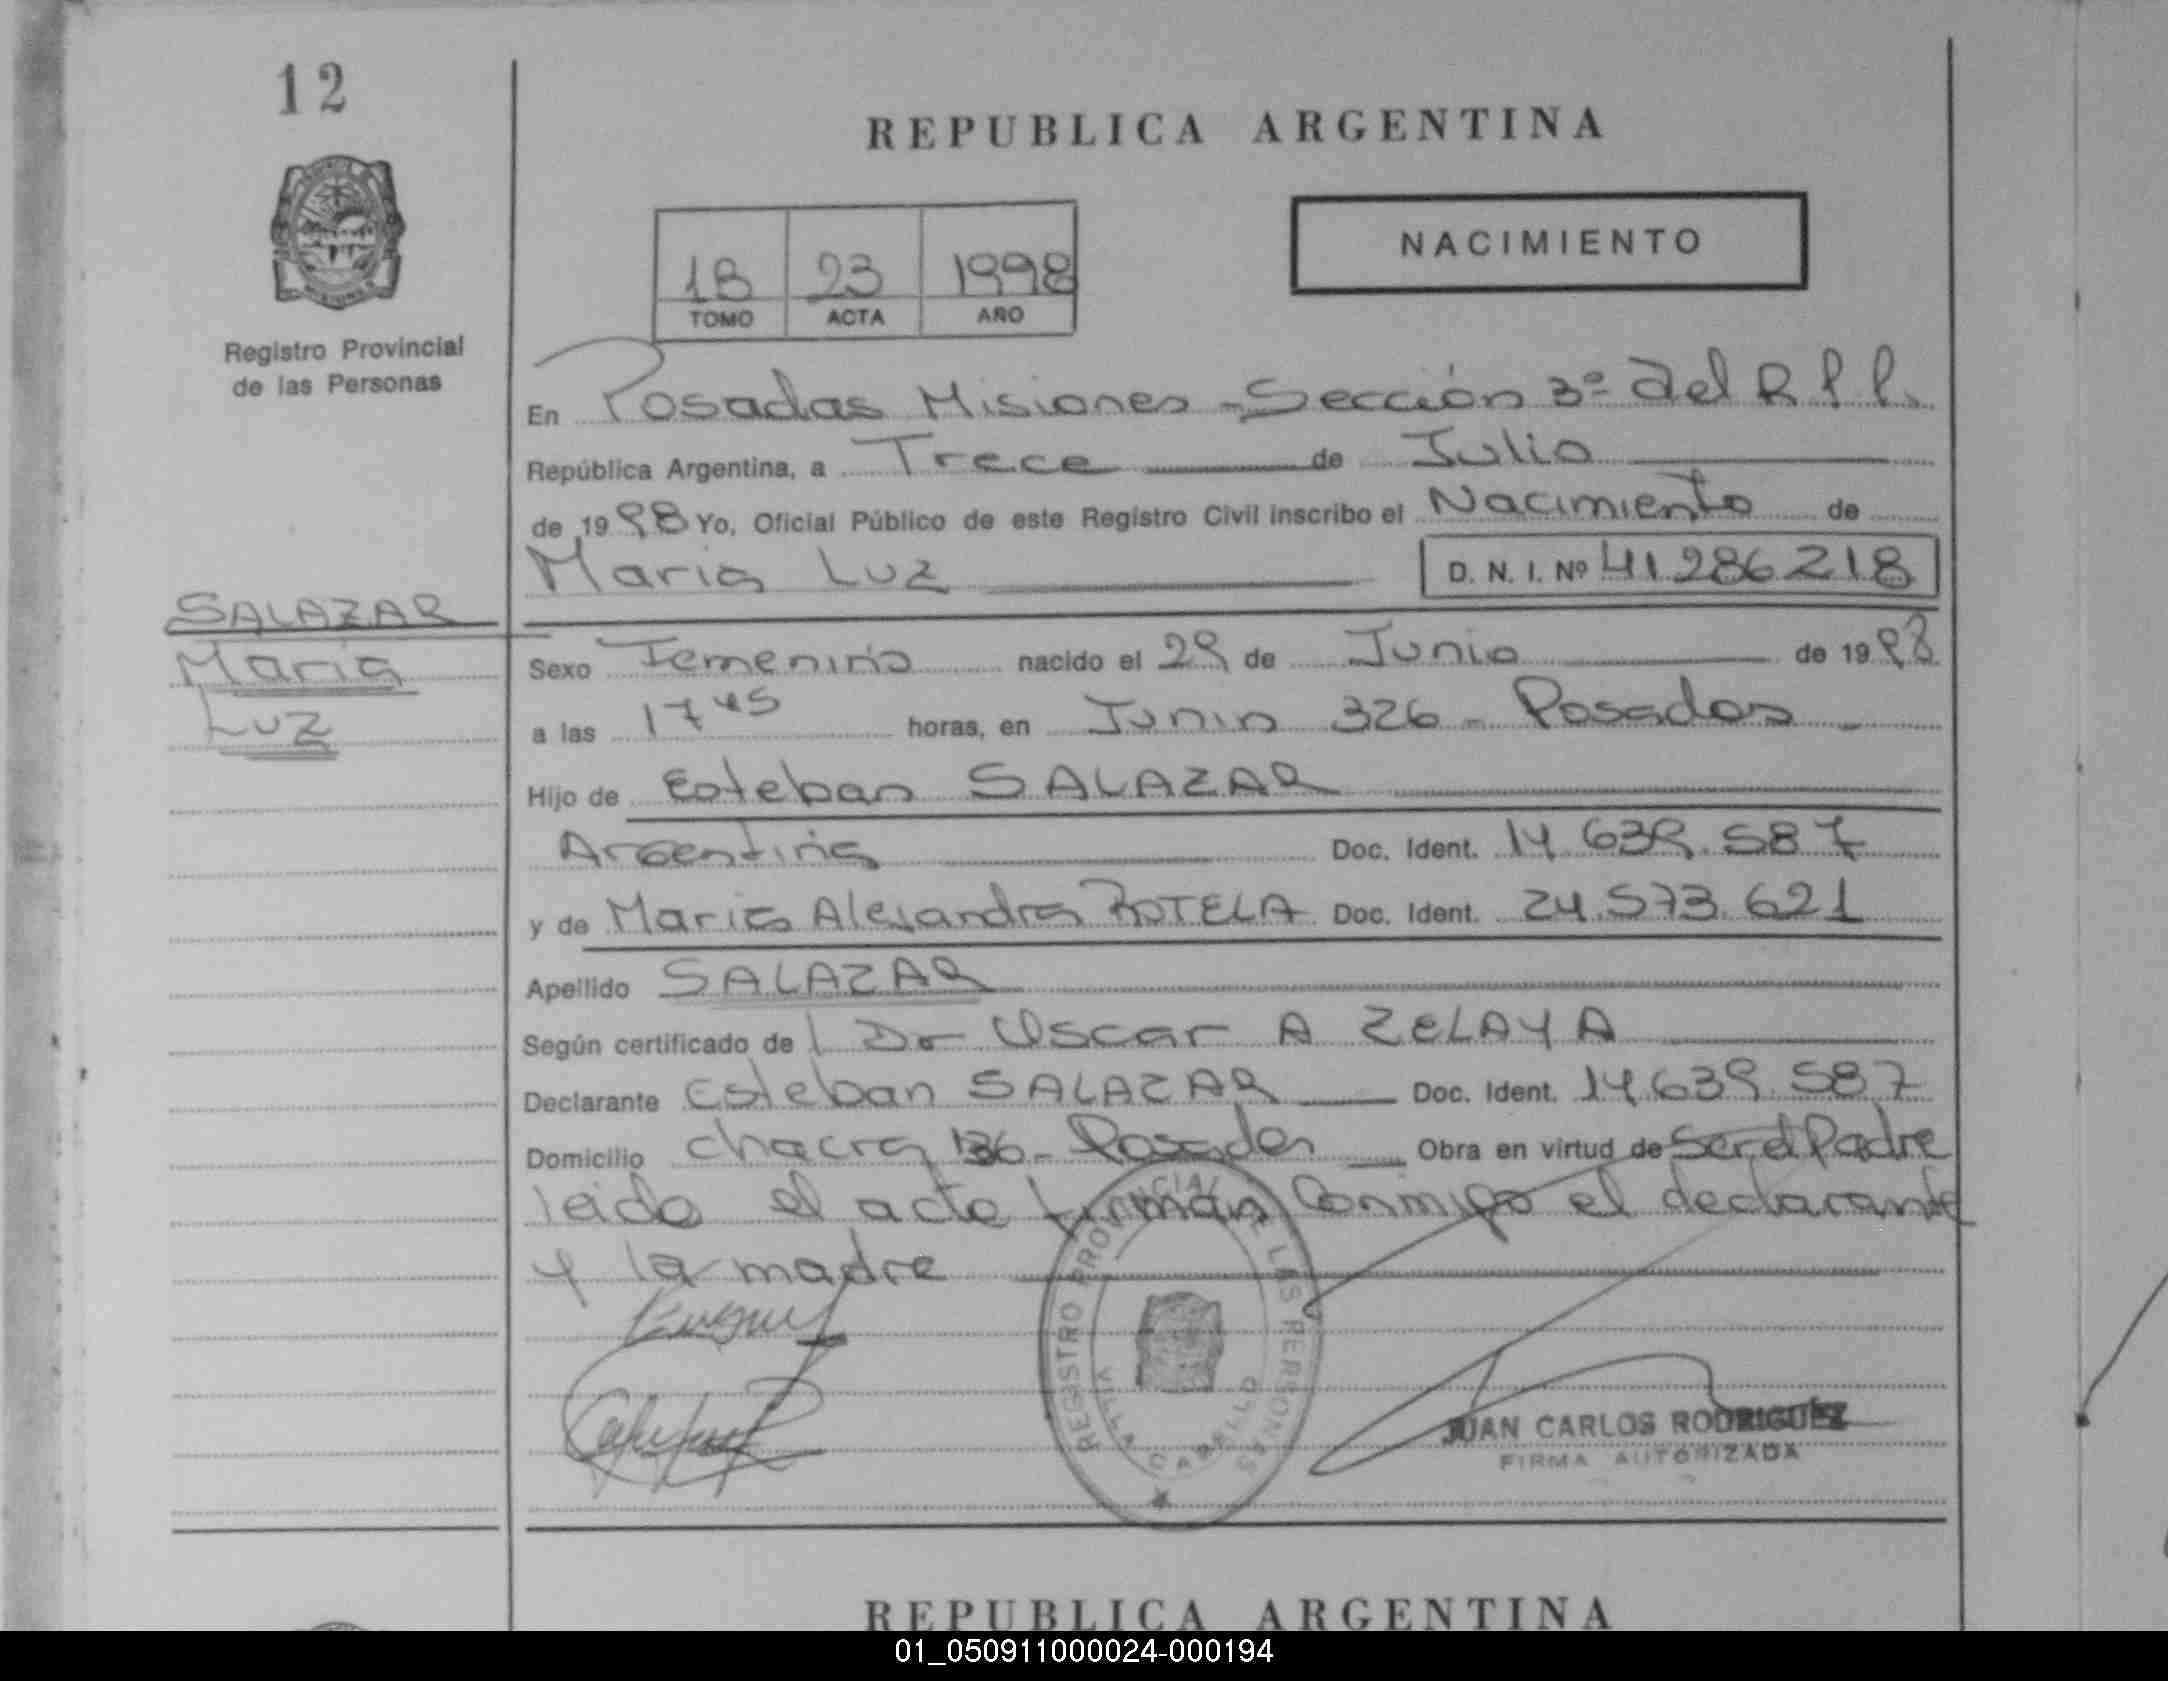 12
REPUBLICA ARGENTINA
NACIMIENTO
18 23 1998
TOMO ACTA AÑO
Registro Provincial
de las Personas
En Posadas Misiones - Sección 3º del R.P.P.
República Argentina, a Trece de Julio
de 1998 Yo, Oficial Público de este Registro Civil inscribo el Nacimiento de
Maria Luz D. N. I. Nº 41286218
SALAZAR
Maria
Luz
Sexo Femenino nacido el 29 de Junio de 1998
a las 17 45 horas, en Junin 326 - Posadas -
Hijo de Esteban SALAZAR
Argentina Doc. Ident. 14.639.587
y de Maria Alejandra BOTELA Doc. Ident. 24.573.621
Apellido SALAZAR
Según certificado de Dr Oscar A ZELAYA
Declarante Esteban SALAZAR Doc. Ident. 14.639.587
Domicilio Chacra 136 - Posadas Obra en virtud de Ser el Padre
leida el acta firman Conmigo el declarante
y la madre
REGISTRO PROVINCIAL DE LAS PERSONAS
VILLA CABELLO
JUAN CARLOS RODRIGUEZ
FIRMA AUTORIZADA
REPUBLICA ARGENTINA
01_050911000024-000194